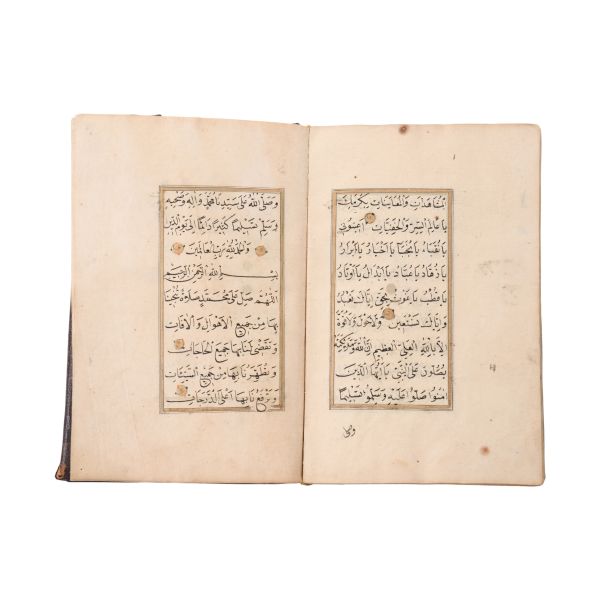 الشاهدات والغائبات بكرمك
يا عالم السر والخفيات أعينوني
يا نقباء يا نجباء يا أخيار يا أبرار
يا زهاد يا عباد يا أبدال يا أوتاد
يا قطب يا غوث بحق إياك نعبد
وإياك نستعين ولا حول ولا قوة
إلا بالله العلي العظيم إن الله وملائكته
يصلون على النبي يا أيها الذين
آمنوا صلوا عليه وسلموا تسليما
وصلى
وصلى الله على سيدنا محمد وآله وصحبه
وسلم تسليما كثيرا دائما إلى يوم الدين
والحمد لله رب العالمين
بسم الله الرحمن الرحيم
اللهم صل على محمد صلاة تنجينا
بها من جميع الأهوال والآفات
وتقضي لنا بها جميع الحاجات
وتطهرنا بها من جميع السيئات
وترفعنا بها أعلى الدرجات